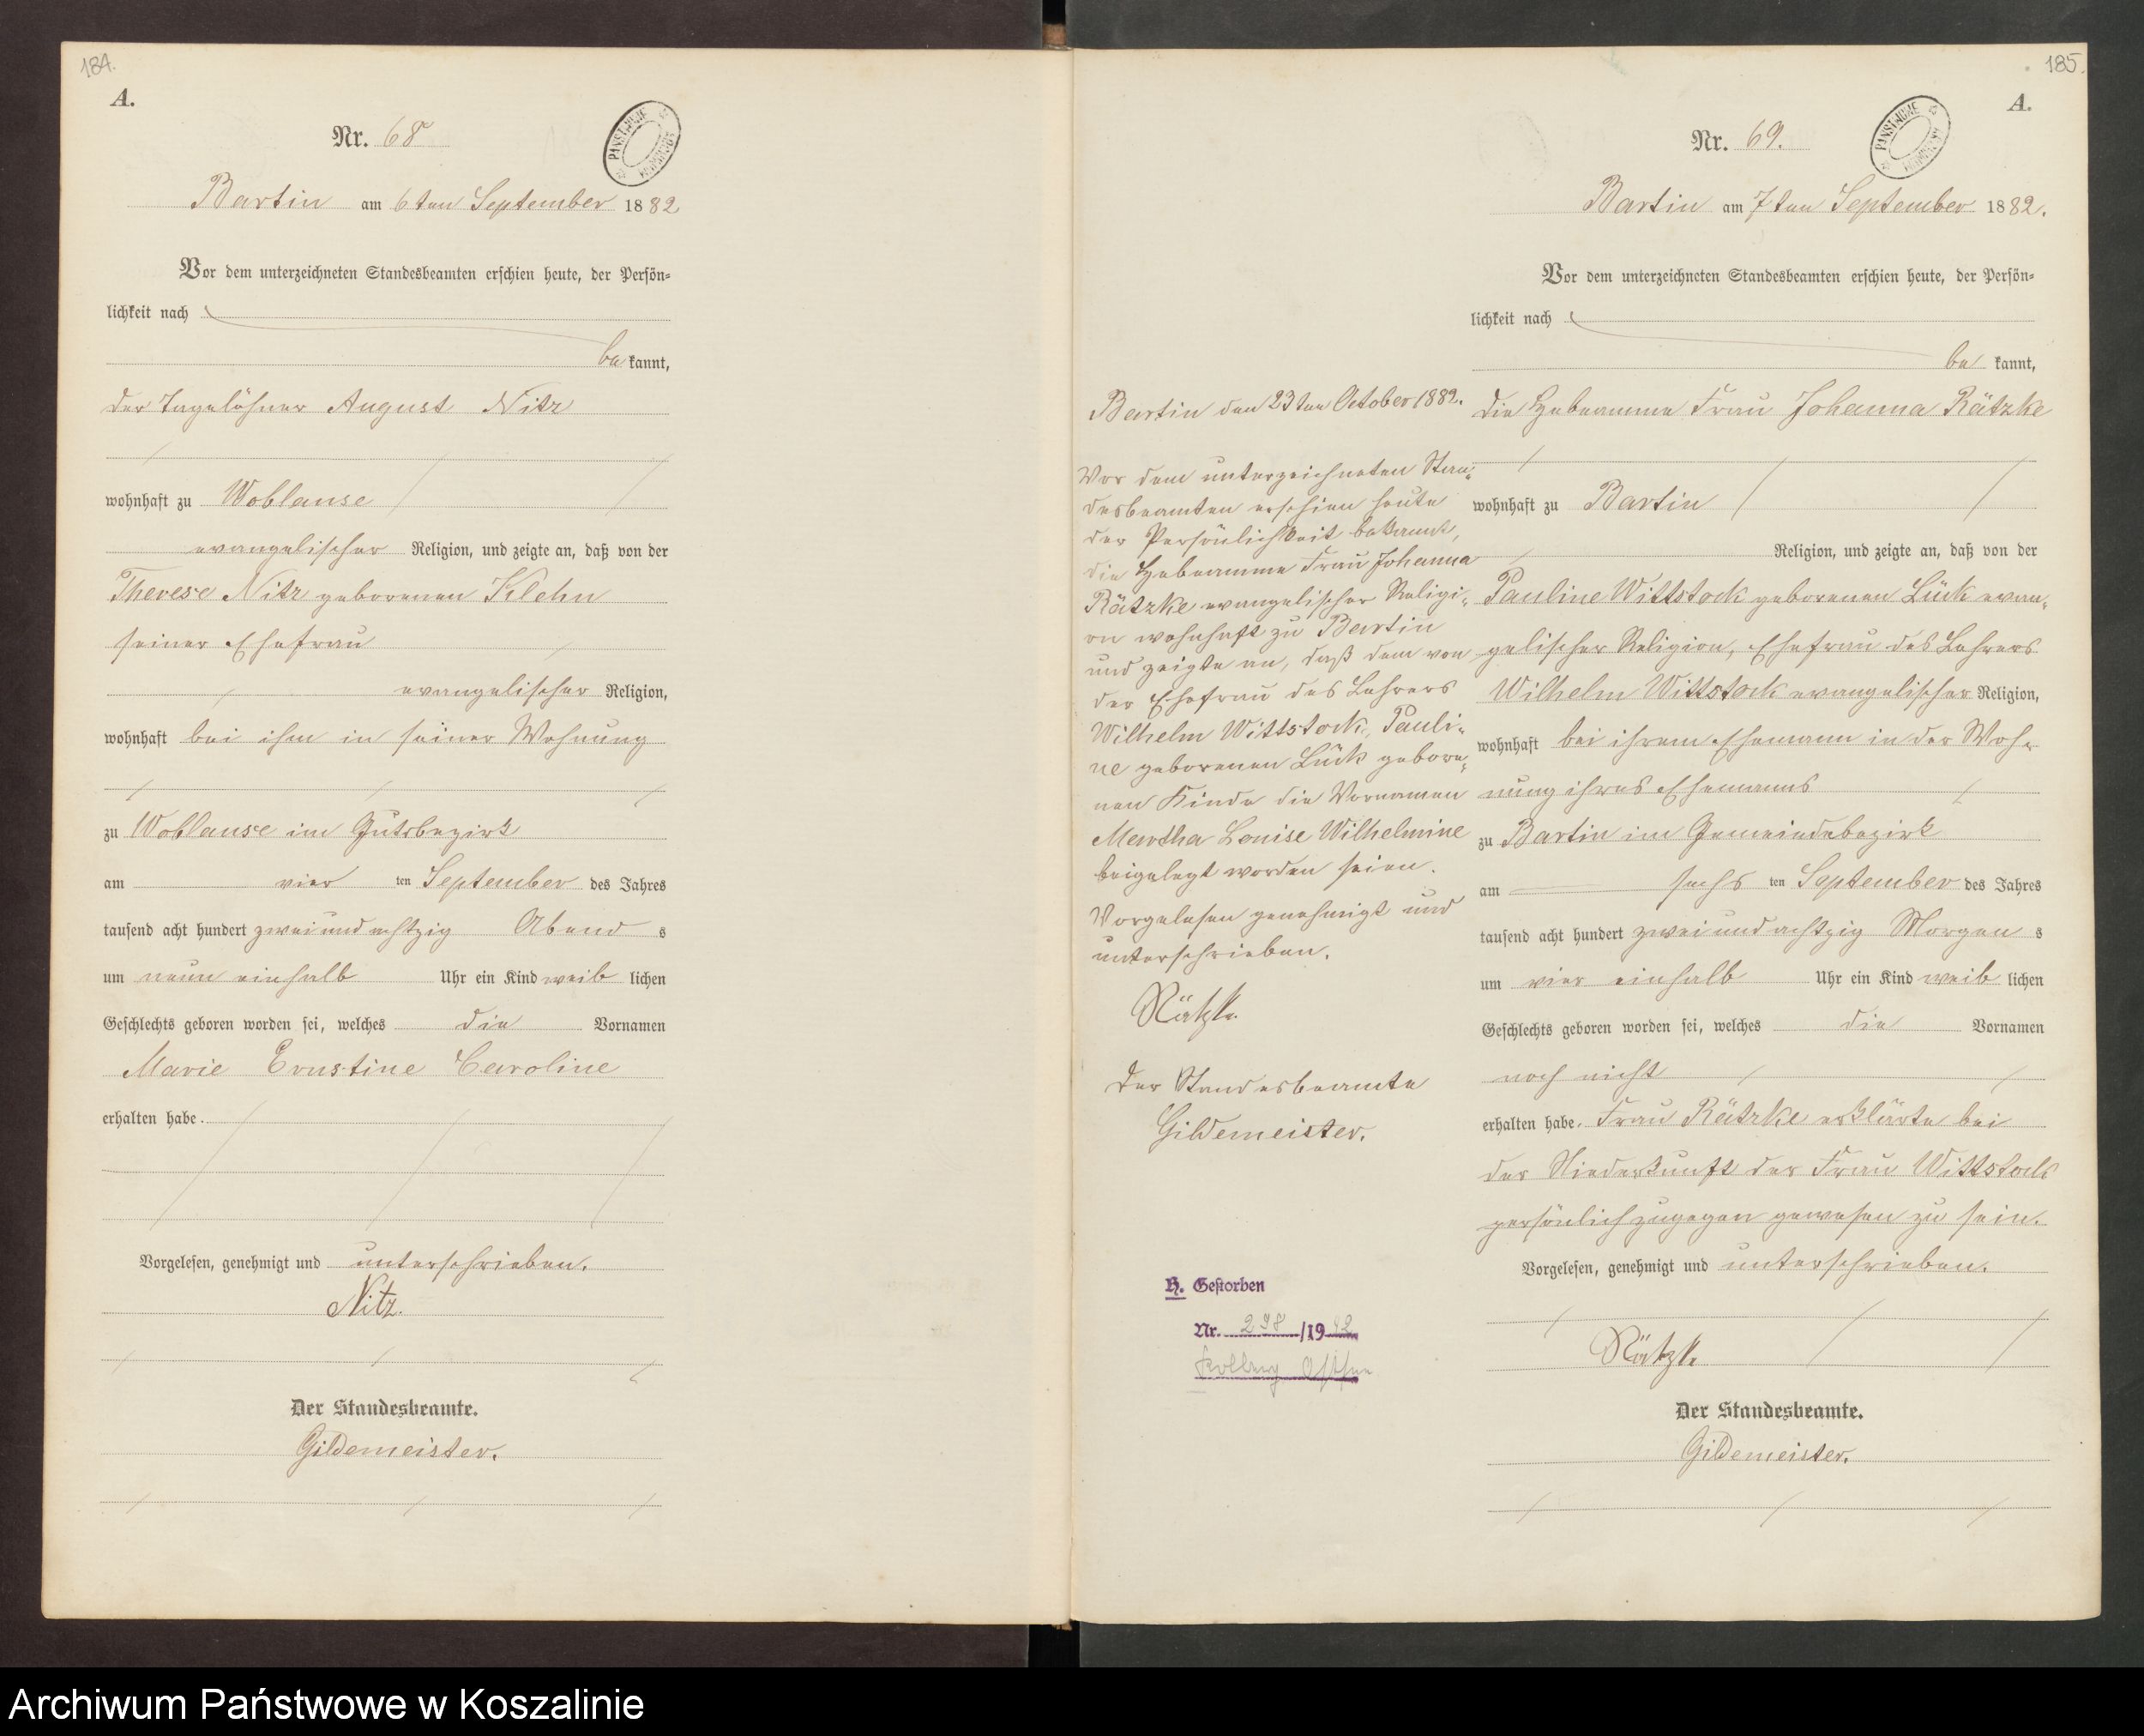 184.
A.
Nr. 68
PAŃSTWOWE
Bartin am 6ten September 1882
Vor dem unterzeichneten Standesbeamten erschien heute, der Persön=
lichkeit nach
bekannt,
der Tagelöhner August Nitz
wohnhaft zu Woblanse
evangelischer Religion, und zeigte an, daß von der
Therese Nitz geborenen Klehn
seiner Ehefrau
evangelischer Religion,
wohnhaft bei ihm in seiner Wohnung
zu Woblanse im Gutsbezirk
am vier ten September des Jahres
tausend acht hundert zweiundachtzig Abends
um neun einhalb Uhr ein Kind weiblichen
Geschlechts geboren worden sei, welches die Vornamen
Marie Ernstine Caroline
erhalten habe.
Vorgelesen, genehmigt und unterschrieben.
Nitz.
Der Standesbeamte.
Gildemeister.
185.
A.
Nr. 69.
PAŃSTWOWE
Bartin am 7ten September 1882.
Vor dem unterzeichneten Standesbeamten erschien heute, der Persön=
lichkeit nach
bekannt,
die Hebeamme Frau Johanna Rätzke
wohnhaft zu Bartin
Religion, und zeigte an, daß von der
Pauline Wittstock geborenen Lück evan=
gelischer Religion, Ehefrau des Lehrers
Wilhelm Wittstock evangelischer Religion,
wohnhaft bei ihrem Ehemann in der Woh=
nung ihres Ehemanns
zu Bartin im Gemeindebezirk
am sechs ten September des Jahres
tausend acht hundert zweiundachtzig Morgens
um vier einhalb Uhr ein Kind weiblichen
Geschlechts geboren worden sei, welches die Vornamen
noch nicht
erhalten habe. Frau Rätzke erklärte bei
der Niederkunft der Frau Wittstock
persönlich zugegen gewesen zu sein.
Vorgelesen, genehmigt und unterschrieben.
Rätzke
Der Standesbeamte.
Gildemeister.
Bartin den 23ten October 1882.
Vor dem unterzeichneten Stan=
desbeamten erschien heute
der Persönlichkeit bekannt,
die Hebeamme Frau Johanna
Rätzke evangelischer Religi=
on wohnhaft zu Bartin
und zeigte an, daß dem von
der Ehefrau des Lehrers
Wilhelm Wittstock, Pauli=
ne geborenen Lück gebore=
nen Kinde die Vornamen
Martha Louise Wilhelmine
beigelegt worden seien.
Vorgelesen genehmigt und
unterschrieben.
Rätzke.
Der Standesbeamte
Gildemeister.
H. Gestorben
Nr. 298/1942
Kolberg Ostsee
Archiwum Państwowe w Koszalinie